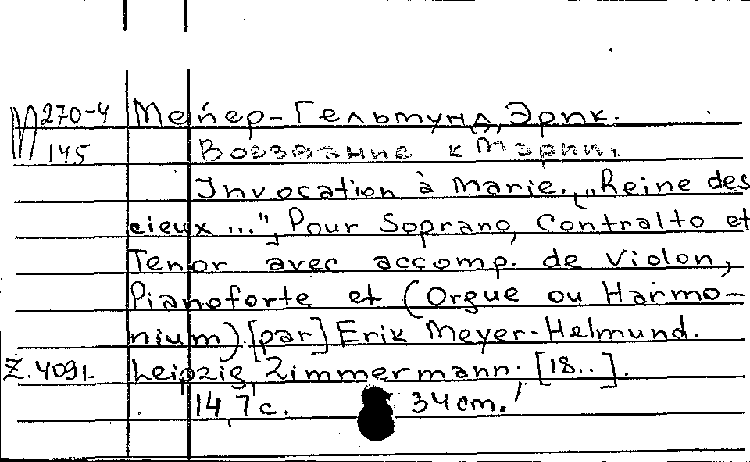 М 270-4 Мейер-Гельмунд, Эрик.
145 Воззвание к Марии.
Invocation à Marie. „Reine des
cieux ...", Pour Soprano, Contralto et
Tenor avec accomp. de Violon,
Pianoforte et (Orgue ou Harmo-
nium). [par] Erik Meyer-Helmund.
Z. 4091. Leipzig, Zimmermann. [18..].
14, 7 с. 34 cm.